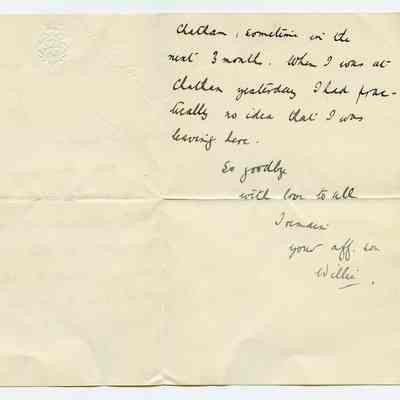 Chatham, sometime in the
next 3 months. When I was at
Chatham yesterday I had prac-
tically no idea that I was
leaving here.
So goodbye
with love to all
I remain
your aff. son
Willie.